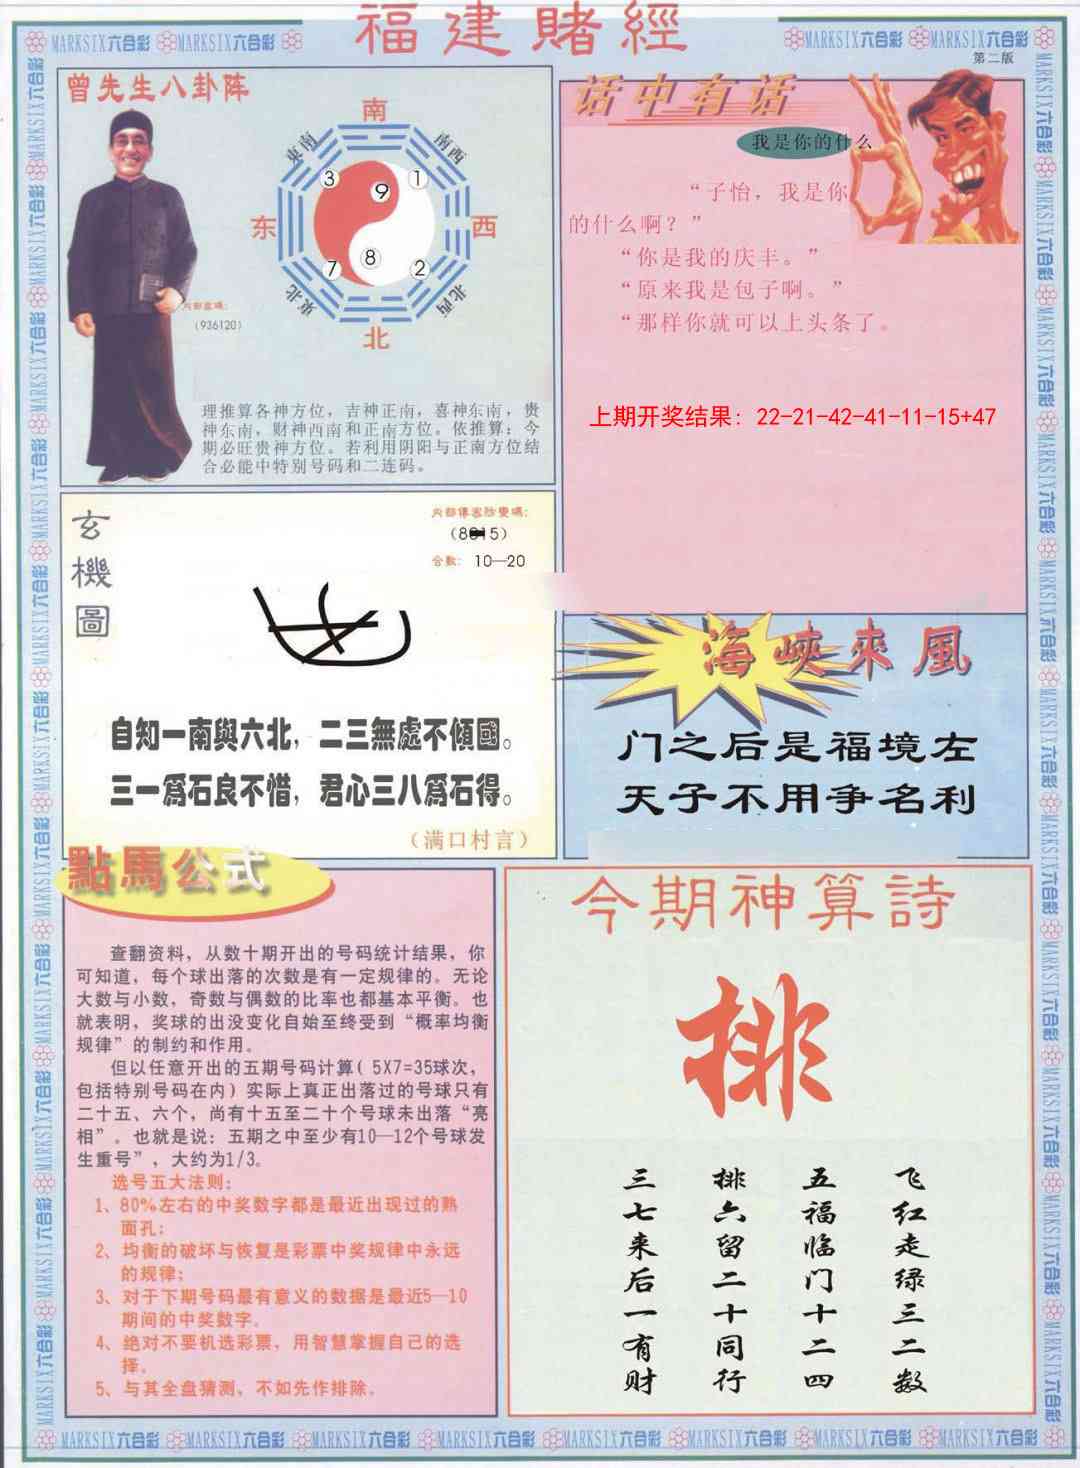 福建賭經
MARKSIX六合彩 MARKSIX六合彩
MARKSIX六合彩 MARKSIX六合彩
第二版
曾先生八卦阵
南
東南
南西
3
9
1
东
西
8
7
2
東北
北西
北
内部玄碼：
（936120）
理推算各神方位，吉神正南，喜神东南，贵
神东南，财神西南和正南方位。依推算：今
期必旺贵神方位。若利用阴阳与正南方位结
合必能中特别号码和二连码。
话中有话
我是你的什么
“子怡，我是你
的什么啊？”
“你是我的庆丰。”
“原来我是包子啊。”
“那样你就可以上头条了。
上期开奖结果：22-21-42-41-11-15+47
玄機圖
合数：10—20
自知一南與六北，二三無處不傾國。
三一爲石良不惜，君心三八爲石得。
（满口村言）
海峽來風
门之后是福境左
天子不用争名利
點馬公式
查翻资料，从数十期开出的号码统计结果，你
可知道，每个球出落的次数是有一定规律的。无论
大数与小数，奇数与偶数的比率也都基本平衡。也
就表明，奖球的出没变化自始至终受到“概率均衡
规律”的制约和作用。
但以任意开出的五期号码计算（5X7=35球次，
包括特别号码在内）实际上真正出落过的号球只有
二十五、六个，尚有十五至二十个号球未出落“亮
相”。也就是说：五期之中至少有10—12个号球发
生重号”，大约为1/3。
选号五大法则：
1、80%左右的中奖数字都是最近出现过的熟
面孔；
2、均衡的破坏与恢复是彩票中奖规律中永远
的规律；
3、对于下期号码最有意义的数据是最近5—10
期间的中奖数字。
4、绝对不要机选彩票，用智慧掌握自己的选
择。
5、与其全盘猜测，不如先作排除。
今期神算詩
排
飞红走绿三二数
五福临门十二四
排六留二十同行
三七来后一有财
MARKSIX六合彩 MARKSIX六合彩 MARKSIX六合彩 MARKSIX六合彩 MARKSIX六合彩 MARKSIX六合彩 MARKSIX六合彩 MARKSIX六合彩